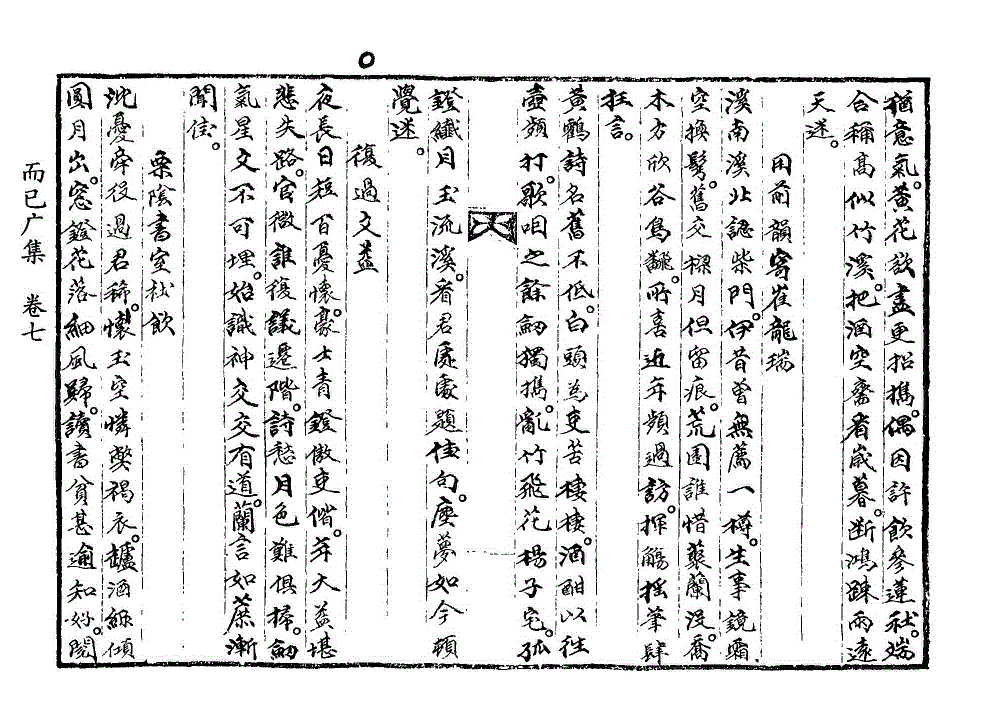 猶意氣。黃花歆盡更招擕。偶因許飲參蓮社。端
合稱髙似竹溪。把酒空齋看歲暮。断鴻踈雨遠
天迷。
用前韻寄崔龍瑞
溪南溪北認柴門。伊昔曾無薦一樽。生事鏡霜
空換鬓。舊交樑月但留痕。荒園誰惜叢蘭沒。喬
木方欣谷鳥飜。所喜近年頻過訪。揮觴摇筆肆
狂言。
黃鶴詩名舊不低。白頭為吏苦棲棲。酒酣以往
壺頻打。歌咀之餘劒獨擕。亂竹飛花楊子宅。孤
鐙纖月玉流溪。看君處處題佳句。塵夢如今頓
覺迷。
復過文益
夜長日短百憂懷。豪士青鐙傲吏偕。年大益堪
悲失路。官微誰復議遷階。詩愁月色難俱掃。劒
氣星文不可埋。始識神交交有道。蘭言如蔗漸
聞佳。
栗陰書室秋飲
沈憂牽役過君稀。懷玉空憐獘褐衣。罏酒綠傾
圓月出。窓鐙花落細風歸。讀書貧甚逾知好。閱
而已广集 卷七